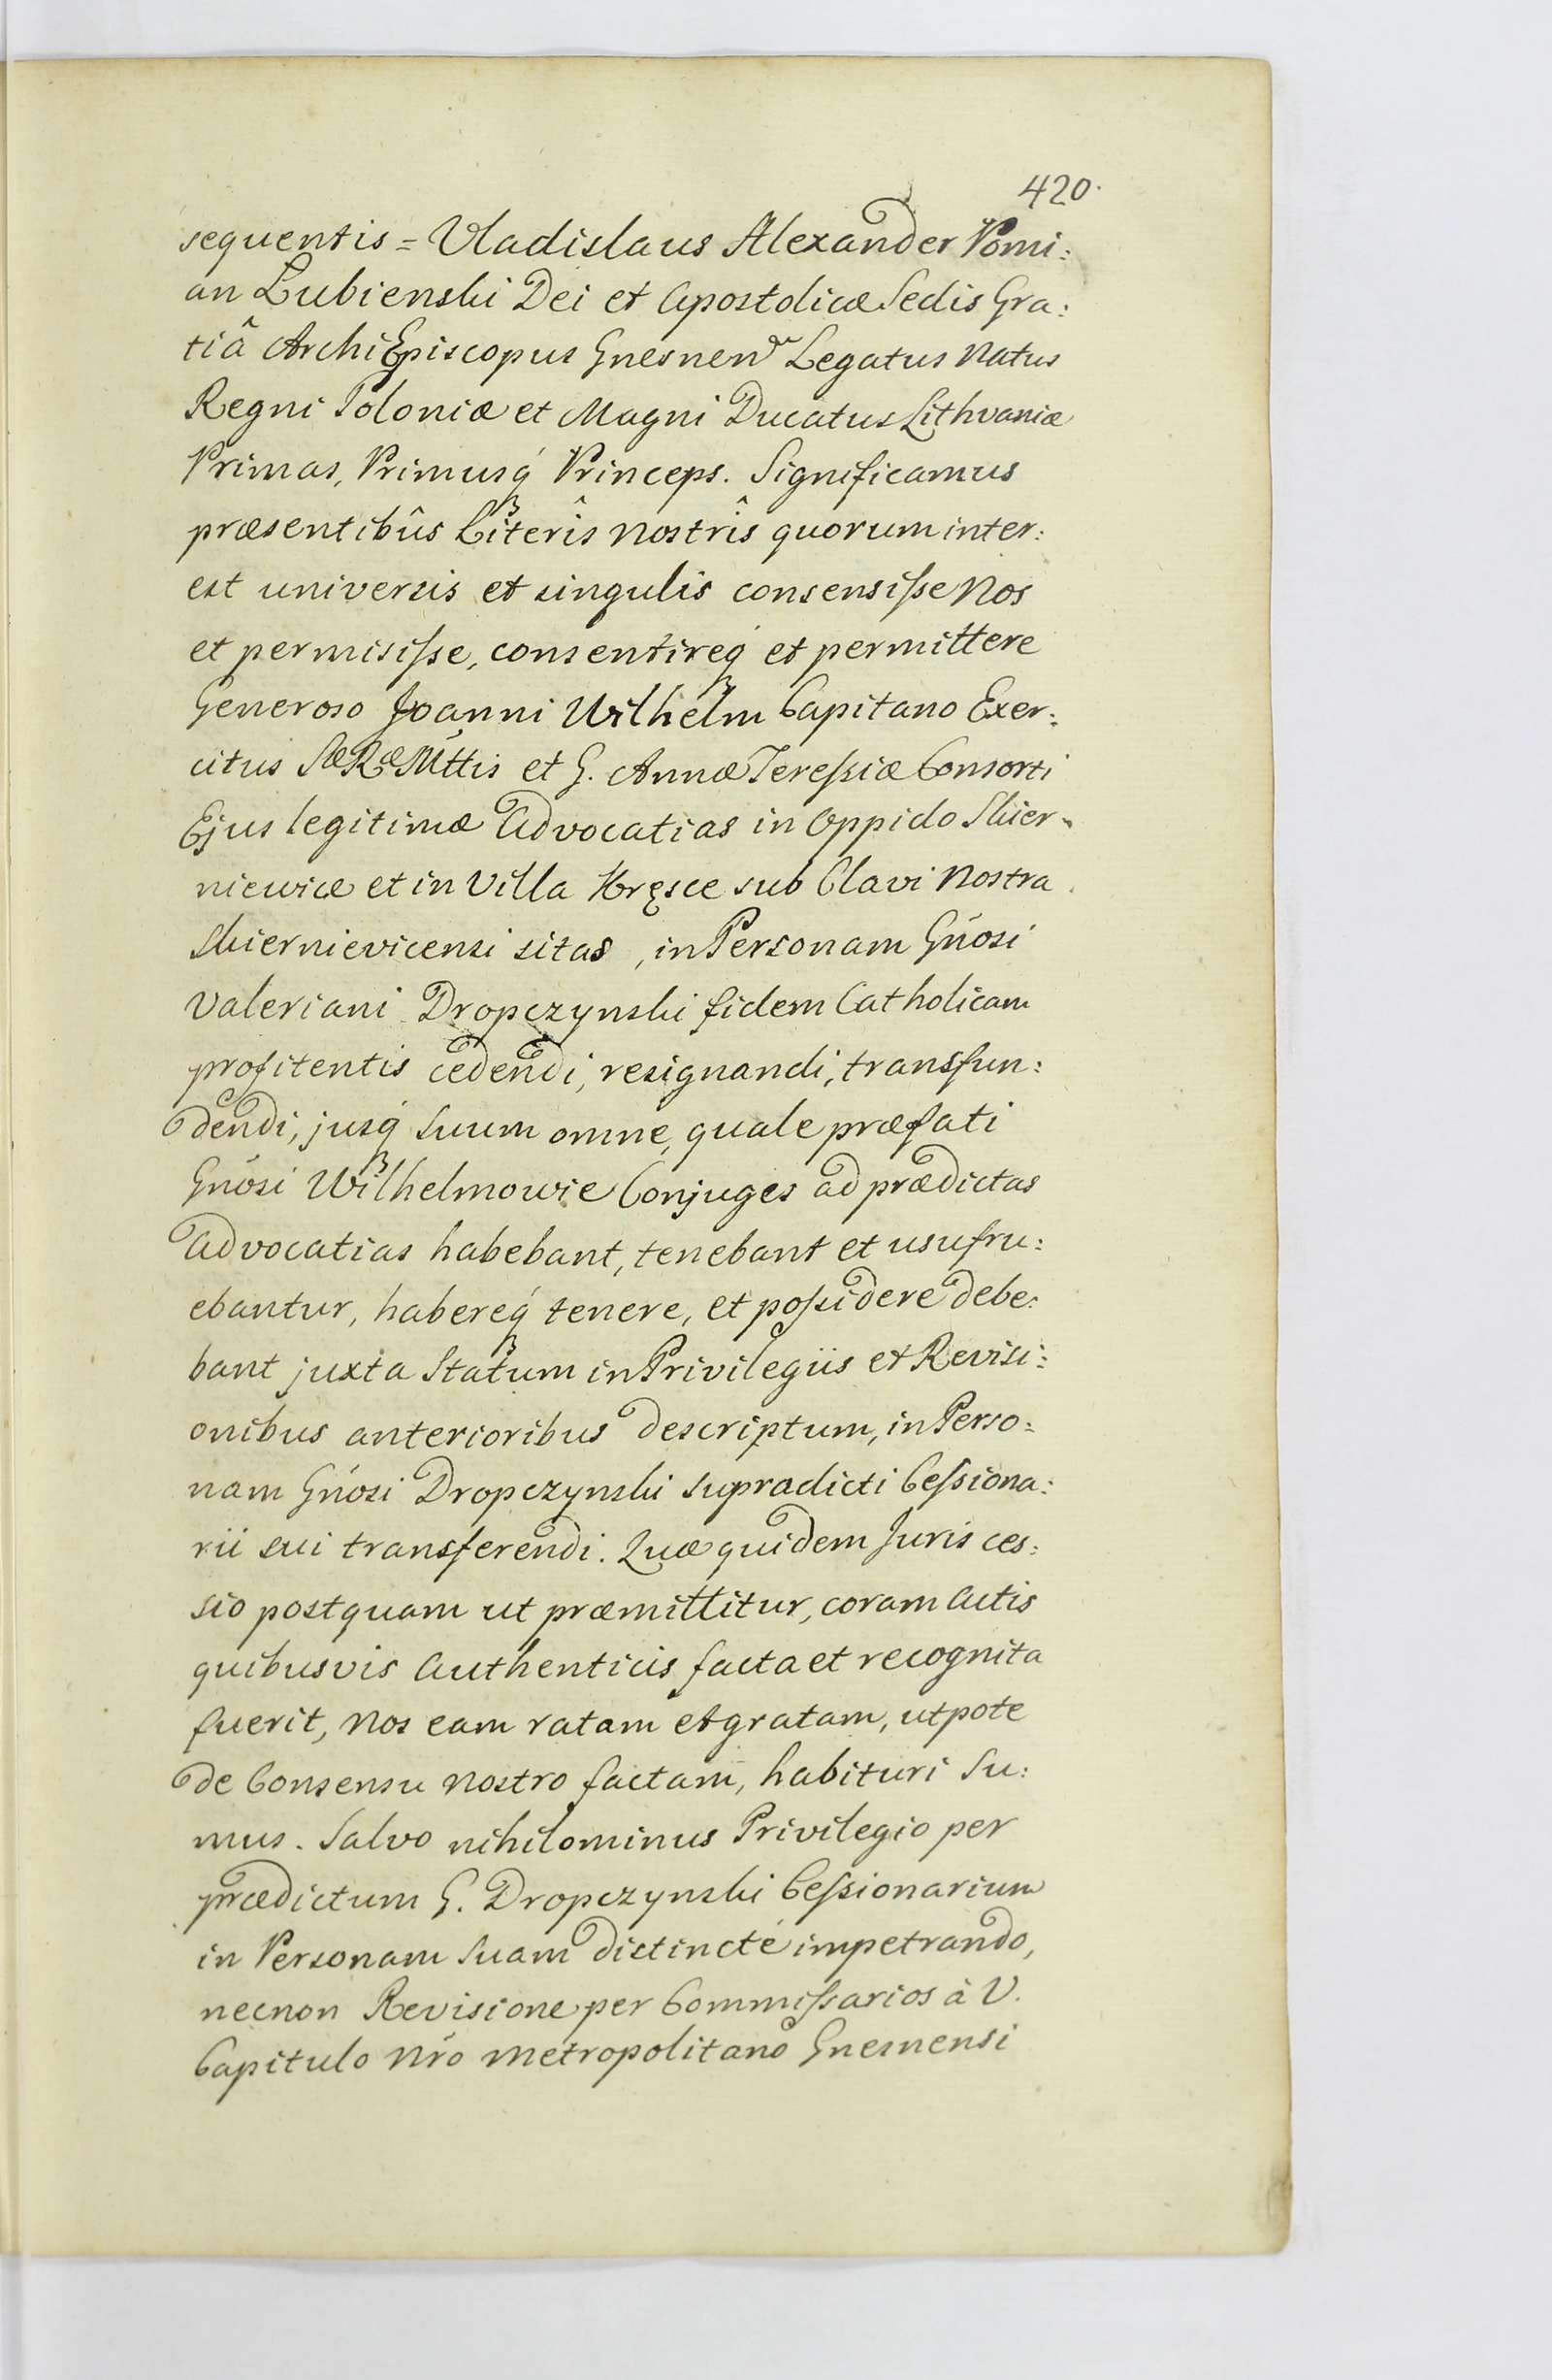 420.
sequentis = Vladislaus Alexander Pomi:
an Lubienski Dei et Apostolicæ Sedis Gra:
tiâ ArchiEpiscopus Gnesnen Legatus Natus
Regni Poloniæ et Magni Ducatus Lithvaniæ
Primas, Primusq́ Princeps. Significamus
præsentibûs Literîs nostrîs quorum inter:
est universis et singulis consensiſse Nos
et permisiſse, consentireq́ et permittere
Generoso Joanni Wilhelm Capitano Exer:
citus SæRæMttis et G. Annæ Tereſsiæ Consorti
Ejus legitimæ Advocatias in Oppido Skier-
niewice et in Villa Kręsce sub Clavi Nostra
Skiernievicensi sitas, in Personam Gńosi
Valeriani Dropczynski fidem Catholicam
profitentis cedendi, resignandi, transfun:
dendi, jusq́ suum omne, quale præfati
Gńosi Wilhelmowie Conjuges ad prædictas
Advocatias habebant, tenebant et usufru:
ebantur, habereq́ tenere, et poſsidere debe:
bant juxta Statum in Privilegiis et Revisi:
onibus anterioribus descriptum, in Perso:
nam Gńosi Dropczynski supradicti Ceſsiona:
rii sui transferendi. Quæ quidem Juris ces:
sio postquam ut præmittitur, coram Actis
quibusvis Authenticis facta et recognita
fuerit, Nos eam ratam et gratam, utpote
de Consensu nostro factam, habituri su:
mus. Salvo nihilominus Privilegio per
prædictum G. Dropczynski Ceſsionarium
in Personam suam distincté impetrando,
necnon Revisione per Commiſsarios à V.
Capitulo Nŕo Metropolitano Gnesnensi